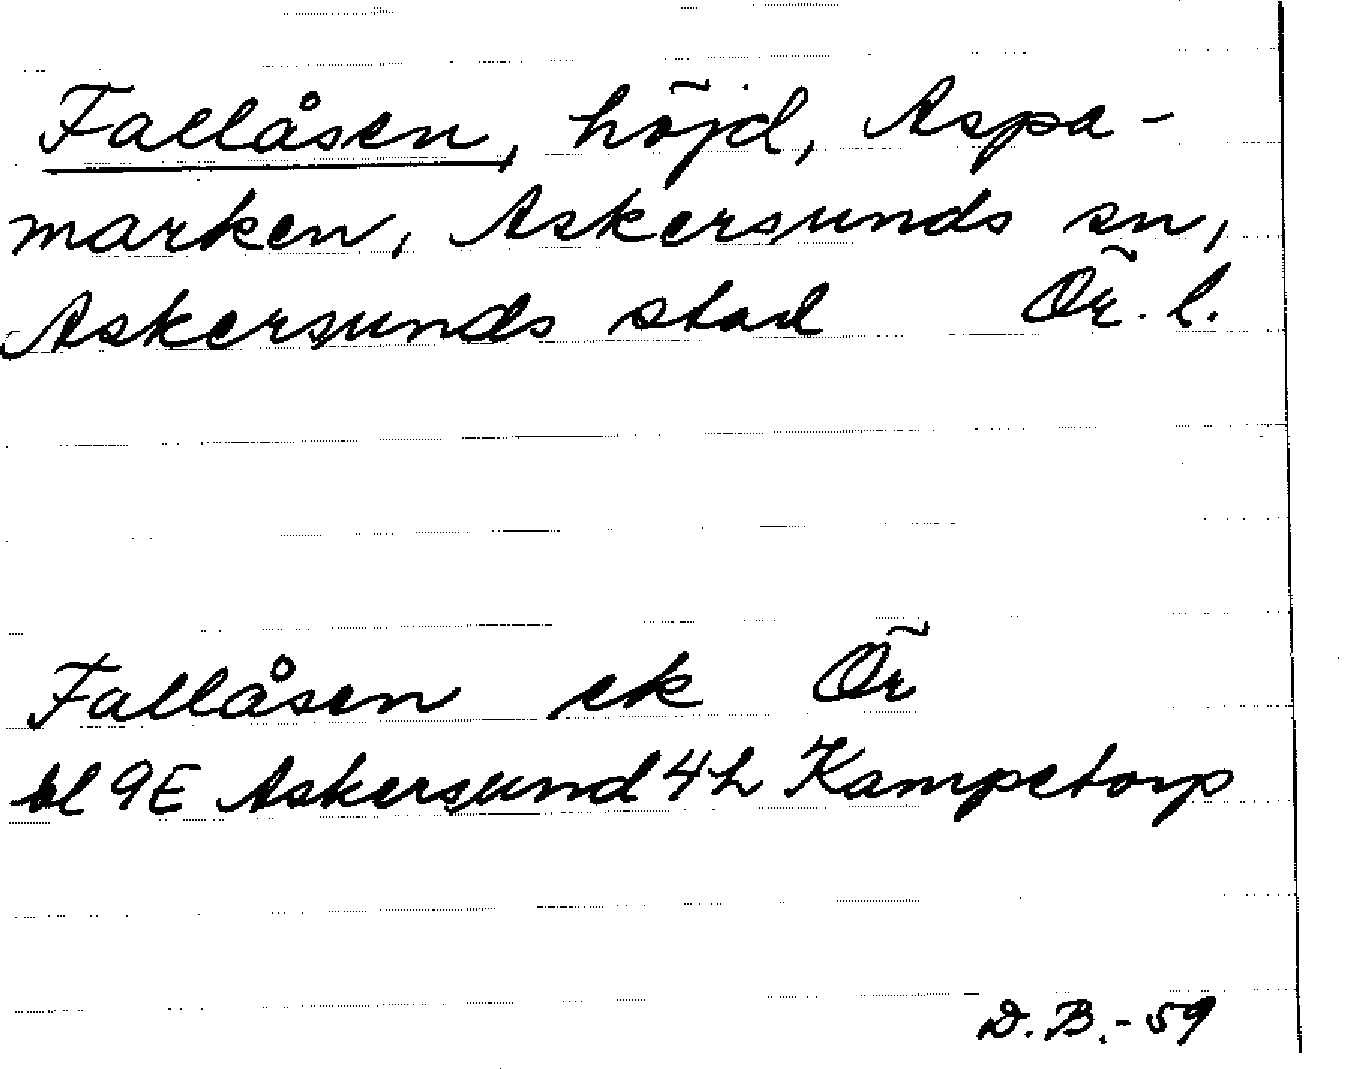 Fallåsen, höjd, Aspa-
marken, Askersunds sn,
Askersunds stad Ör. l.
Fallåsen ek Ör
bl 9E Askersund 4h Kampetorp
D.B.-59